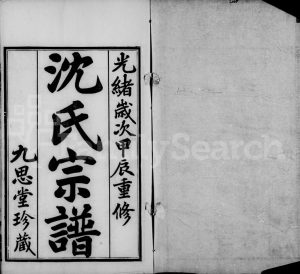 光緒歲次甲辰重修
沈氏宗譜
九思堂珍藏
FamilySearch